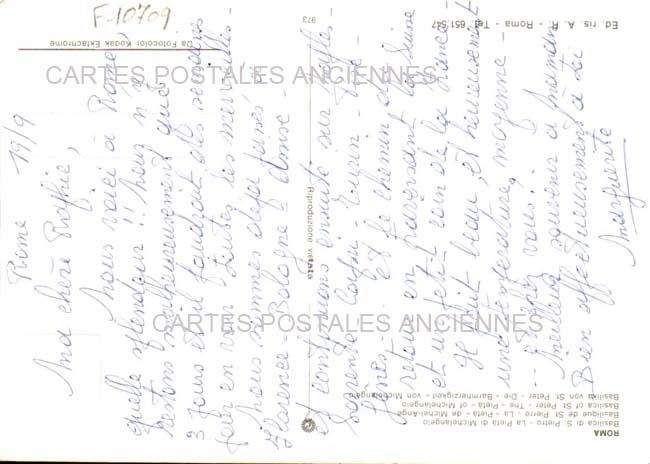 F-10709
Rome
19/9
Ma chère
Nous voici à Rome,
quelle splendeur !! Nous n'y
restons malheureusement que
3 jours et il faudrait des semaines
pour en voir toutes les merveilles -
Nous sommes déjà passés
Florence - Bologne -
et continuons ensuite sur Naples
Sorrente Capri - Turin -
Gênes - et le chemin de
retour en traversant la Suisse
et un petit coin de la France -
Il fait beau, et heureusement
une température moyenne -
et chez vous ?
Meilleur souvenir à maman
Bien affectueusement à toi
Marguerite
CARTES POSTALES ANCIENNES
CARTES POSTALES ANCIENNES
Da Fotocolor Kodak Ektachrome
973
Ed. ris. A. P. - Roma - Tel. 651.547
Riproduzione vietata
ROMA
Basilica di S. Pietro - La Pietà di Michelangelo
Basilique de St Pierre - La Pietà de Michel-Ange
Basilica of St Peter - The Pietà of Michelangelo
Basilika von St Peter - Die Barmherzigkeit von Michelangelo